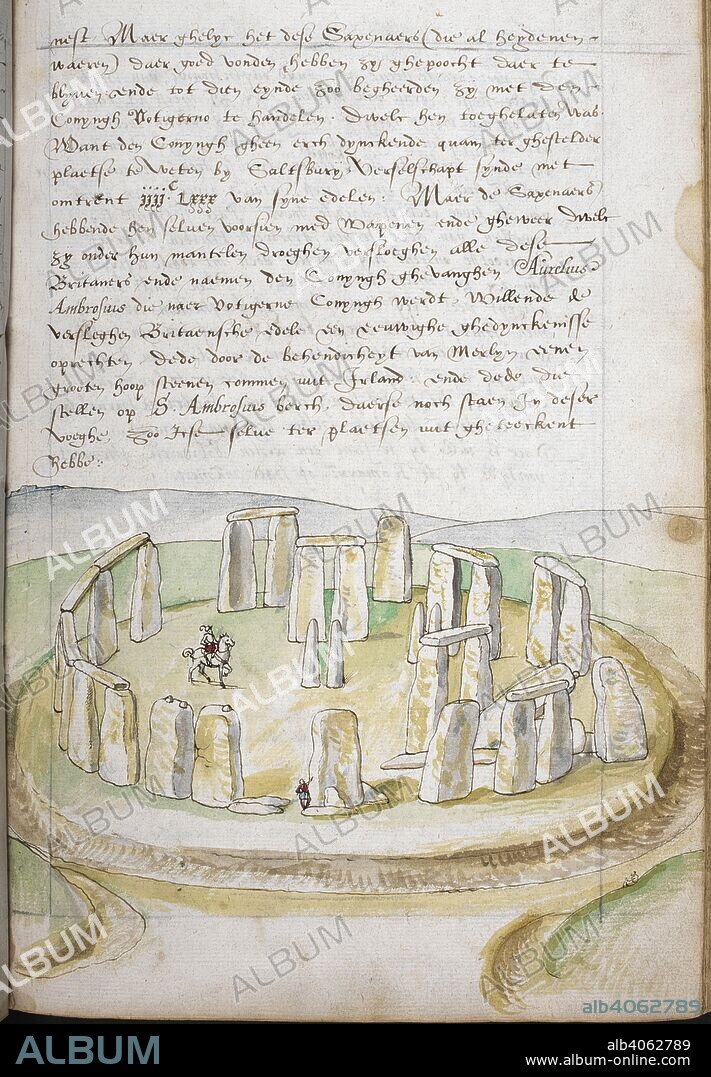 nest Maer ghelyc het dese Saxenaers (die al heydenen
waeren) daer goed vonden hebben zy ghepoocht daer te
blyven ende tot dien eynde zoo begheerden zy met den
Conyngh Votigerno te handelen. dwelc hen toeghelaten was.
Want den Conyngh gheen erch dynckende quam ter ghestelder
plaetse te weten by Saltsbury verselschapt synde met
omtrent iiii^c Lxxx van syne edelen: Maer de Saxenaers
hebbende hen selven voorsien met Wapenen ende gheweer dwelc
zy onder hun mantelen droeghen versloeghen alle dese
Britaners ende naemen den Conyngh ghevanghen Aurelius
Ambrosius die naer Votigerne Conyngh werdt, Willende de
versleghen Britaensche edele een eeuwighe ghedynckenisse
oprechten dede door de behendicheyt van Merlyn eenen
grooten hoop steenen commen uut Irland ende dede die
stellen op S. Ambrosius berch, dwerse noch staen in deser
voeghe, zoo icse selve ter plaetsen uut gheteeckent
hebbe:
ALBUM
alb4062789
ALBUM
alb4062789
www.album-online.com